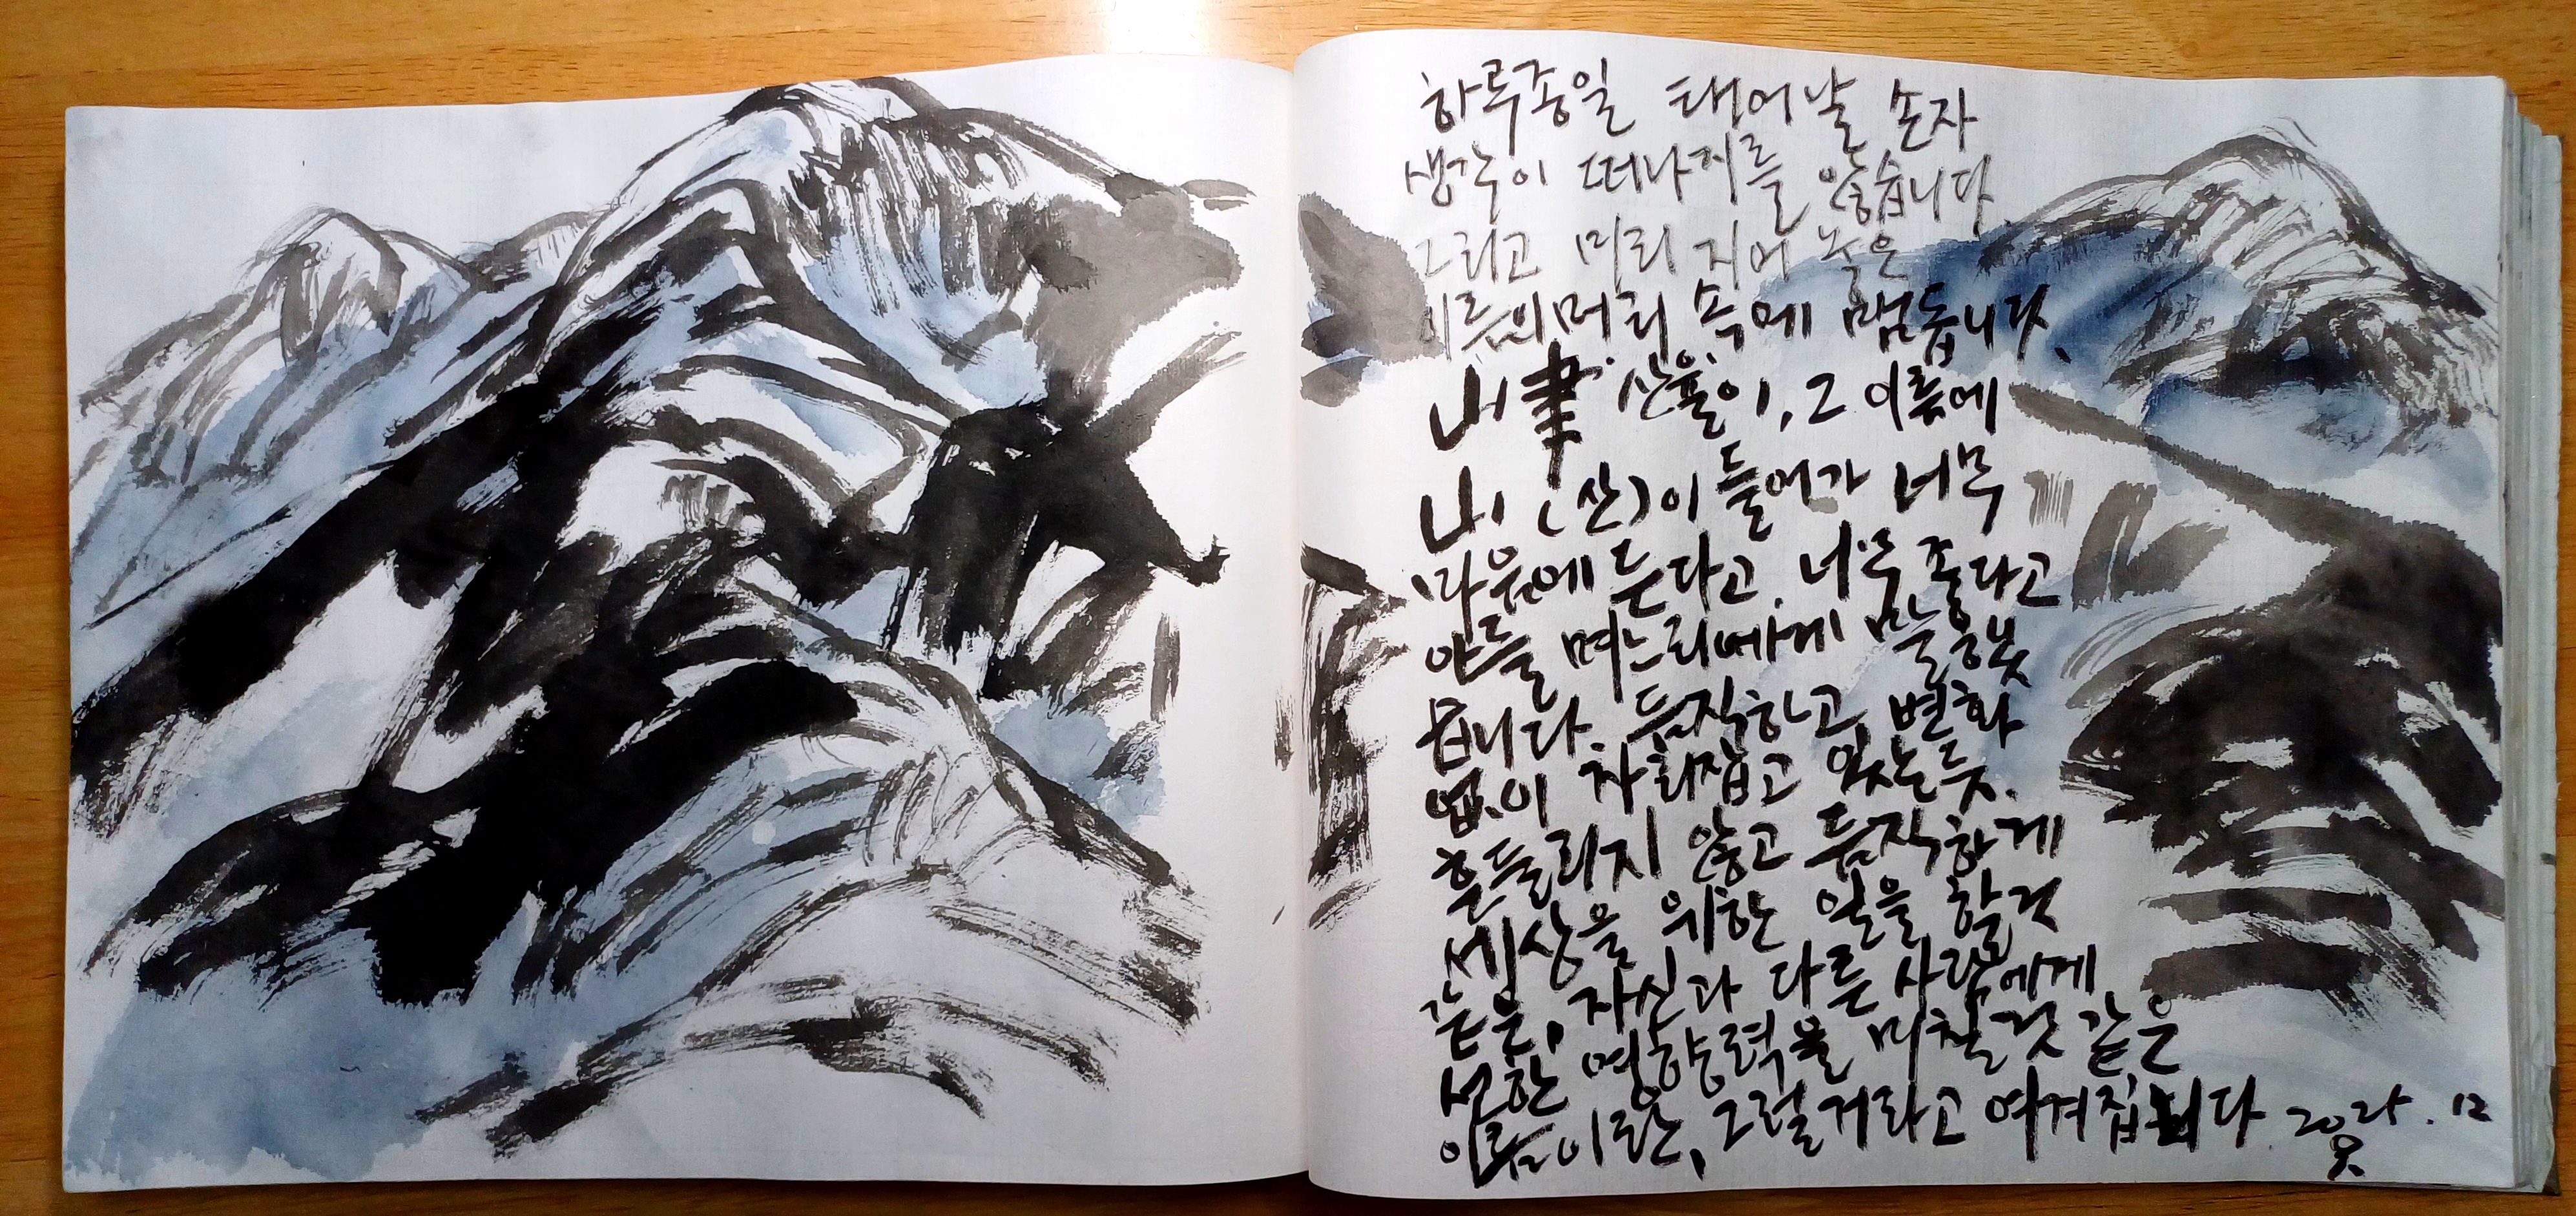 하루종일 태어날 손자
생각이 떠나지를 않습니다.
그리고 미리 지어 놓은
이름이 머리 속에 맴돕니다.
山聿 산율이, 그 이름에
山 (산)이 들어가 너무
마음에 든다고. 너무 좋다고
아들 며느리에게 말했
습니다. 듬직하고, 변화
없이 자리잡고 있는듯.
흔들리지 않고 듬직하게
세상을 위한 일을 할것
같은, 자신과 다른 사람에게
선한 영향력을 미칠것 같은
이름이란, 그럴거라고 여겨집니다. 2025. 12